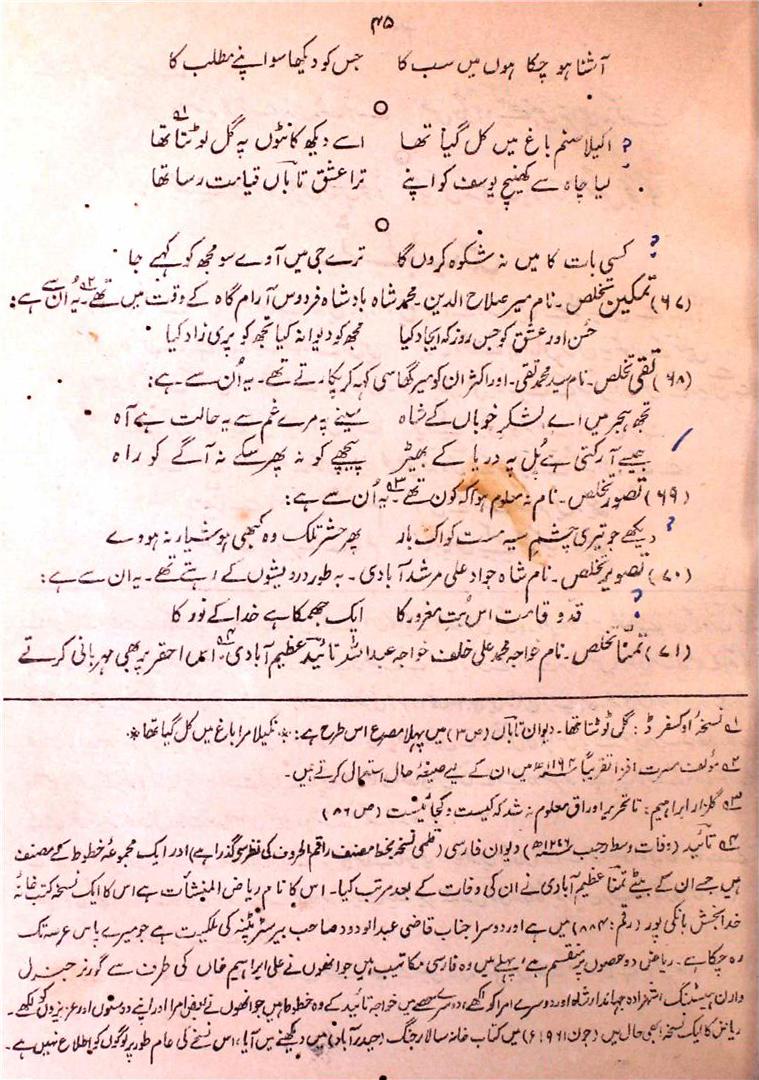 ۴۵
آشنا ہو چکا ہوں میں سب کا جس کو دیکھا سو اپنے مطلب کا
اکیلا صنم باغ میں کل گیا تھا اسے دیکھ کانٹوں پہ گل لوٹتا تھا ؂۱
لیا چاہ سے کھینچ یوسف کو اپنے ترا عشق تاباں قیامت رسا تھا
کسی بات کا میں نہ شکوہ کروں گا ترے جی میں آوے سو مجھ کو کہے جا
(۶۷) تمکین تخلص۔ نام میر صلاح الدین۔ محمد شاہ بادشاہ فردوس آرام گاہ کے وقت میں تھے ؂۲۔ یہ اُن سے ہے:
حُسن اور عشق کو جس روز کہ ایجاد کیا مجھ کو دیوانہ کیا تجھ کو پری زاد کیا
(۶۸) تقی تخلص۔ نام سید محمد تقی۔ اور اکثر ان کو میر گھاسی کہہ کر پکارتے تھے۔ یہ اُن سے ہے:
تجھ ہجر میں اے لشکرِ خوباں کے شاہ سینے پہ مرے غم سے یہ حالت ہے آہ
جیسے آ رکتی ہے پُل پہ دریا کے بھیڑ پیچھے کو نہ پھر سکے نہ آگے کو راہ
(۶۹) تصور تخلص۔ نام نہ معلوم ہوا کہ کون تھے ؂۳۔ یہ اُن سے ہے:
دیکھے جو تیری چشمِ سیہ مست کو اک بار پھر حشر تلک وہ کبھی ہوشیار نہ ہووے
(۷۰) تصویر تخلص۔ نام شاہ جواد علی مرشد آبادی۔ بہ طور درویشوں کے رہتے تھے۔ یہ ان سے ہے:
قد و قامت اس بُتِ مغرور کا ایک جھمکا ہے خدا کے نور کا
(۷۱) تمنّا تخلص۔ نام خواجہ محمد علی خلف خواجہ عبداللہ تائید عظیم آبادی ؂۴۔ اس احقر پر بھی مہربانی کرتے
؂۱ نسخۂ اوکسفرڈ: گل ٹوٹتا تھا۔ دیوان تاباں (ص ۳) میں پہلا مصرع اس طرح ہے: ٭ اکیلا مرا باغ میں کل گیا تھا ٭
؂۲ مؤلف مسرت افزا تقریباً ۱۱۹۴ھ میں ان کے لیے صیغۂ حال استعمال کرتے ہیں۔
؂۳ گلزار ابراہیم: تا تحریر اوراق معلوم نہ شد کہ کیست و کجائیست (ص ۸۶)
؂۴ تائید (وفات وسط رجب ۱۲۰۶ھ) دیوان فارسی (قلمی نسخہ بخط مصنف راقم الحروف کی نظر سے گذرا ہے) اور ایک مجموعۂ خطوط کے مصنف
ہیں جسے ان کے بیٹے تمنّا عظیم آبادی نے ان کی وفات کے بعد مرتب کیا۔ اس کا نام ریاض المنشآت ہے اس کا ایک نسخہ کتب خانۂ
خدا بخش بانکی پور (رقم: ۸۸۴) میں ہے اور دوسرا جناب قاضی عبدالودود صاحب بیرسٹر پٹنہ کی ملکیت ہے جو میرے پاس عرصہ تک
رہ چکا ہے۔ ریاض دو حصوں پر منقسم ہے، پہلے میں وہ فارسی مکاتیب ہیں جو انھوں نے علی ابراہیم خاں کی طرف سے گورنر جنرل
وارن ہیسٹنگ، شہزادہ جہاندار شاہ اور دوسرے امرا کو لکھے، دوسرے حصے میں خواجہ تائید کے وہ خطوط ہیں جو انھوں نے بعض امرا اور اپنے دوستوں اور عزیزوں کو لکھے۔
ریاض کا ایک نسخہ ابھی حال میں (جون ۱۹۶۱ء) میں کتاب خانہ سالار جنگ (حیدر آباد) میں دیکھنے میں آیا، اس نسخے کی عام طور پر لوگوں کو اطلاع نہیں ہے۔